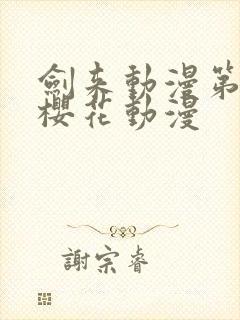 劍来動漫第
櫻花動漫
謝宗睿